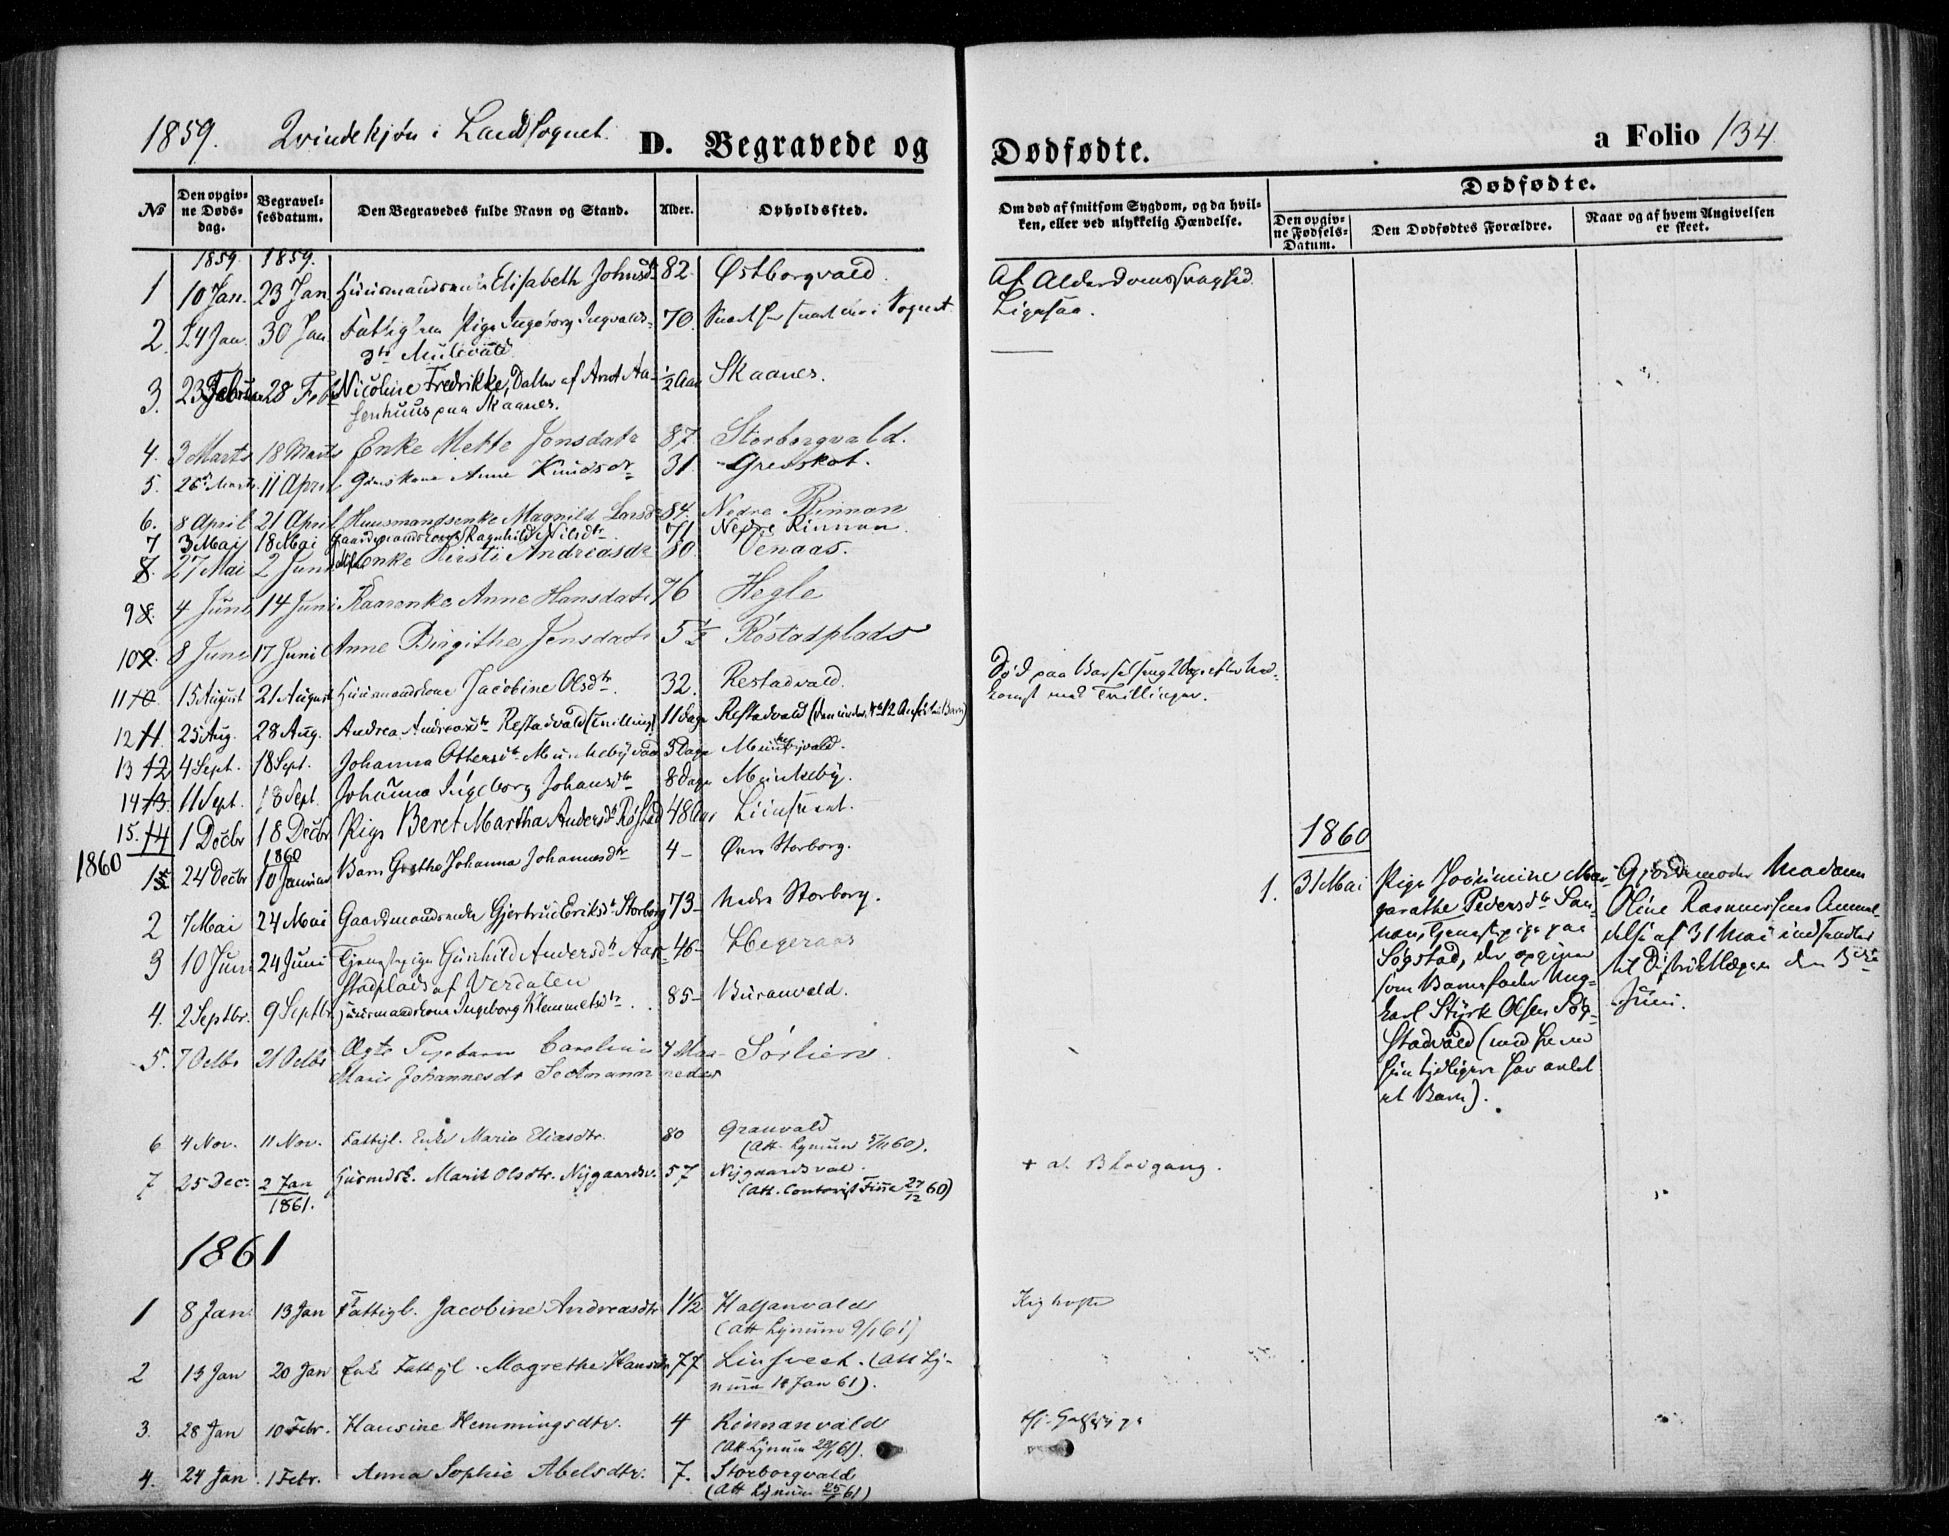 1859. Qvindekjøn i Landsognet. D. Begravede og
Dødfødte. a Folio 134
№ Den opgivne Dødsdag. Begravelsesdatum. Den Begravedes fulde Navn og Stand. Alder. Opholdssted.
Om død af smitsom Sygdom, og da hvilken, eller ved ulykkelig Hændelse. Dødfødte. Den opgivne Fødsels-Datum. Den Dødfødtes Forældre. Naar og af hvem Angivelsen er skeet.
1859. 1859.
1 10 Jan. 23 Jan Elisabeth Johnsdtr 82. Østborgvald. Af Alderdomssvaghed
2. 24 Jan. 30 Jan Pige Ingeborg Ingvalds- 70. i Sognet. Ligesaa.
dtr
3. 23 Februar 28 Febr Nicoline Fredrikke, Datter af Arnt Aa- ½ Aar Skaanes.
senhuus paa Skaanes.
4. 3 Marts 18 Marts Enke Mette Jonsdatr 87. Storborgvald.
5. 26 Marts 11 April Anne Knudsdtr 31 Grevskot.
6. 8 April 21 April Huusmandsenke Magnild Larsdr 84. Nedre Rinnan
7 3 Mai 18 Mai Gaardmandskone Ragnhild Nilsdtr 71 Nedre Rinnan.
8. 27 Mai 2 Juni Enke Kirsti Andreasdr 80 Venaas.
9 8. 4 Juni 14 Juni Kaarenke Anne Hansdatr 76 Hegle
10 9. 8 Juni 17 Juni Anne Birgithe Jensdatr 5½ Röstadplads
11 10 15 August 21 August Huusmandskone Jacobine Olsdtr. 32. Restadvald. Død paa Barselseng
med Tvillinger.
12 11. 25 Aug. 28 Aug. Andrea Andreasdtr Restadvald (Tvilling) 11 Dage Restadvald
13 12 4 Sept. 18 Sept. Johanna Ottersdtr Munkebyvald 3 Dage Munkebyvald.
14 13. 11 Sept. 18 Sept. Johanna Ingeborg Johansdtr 8 Dage Munkeby.
15. 14 1 Decbr 18 Decbr Pige Beret Martha Andersdtr Røstad 48 Aar
1860 1860
1 24 Decbr 10 Januar Barn Grethe Johanna Johannesdtr 4 - Storborg.
2 7 Mai 24 Mai Gaardmandsenke Gjertrud Eriksdtr Storborg 73 - Nedre Storborg.
3 10 Juni 24 Juni Tjenestepige Gunhild Andersdtr Aak- 46 - Hegeraas
stadplads af Verdalen
4. 2 Septbr. 9 Septbr Huusmandskone Ingeborg Klemmetsdtr. 85 - Buranvald.
5. 7 Octbr 21 Octbr Ægte Pigebarn Caroline 7 Maa- Sörlien.
Marie Johannesdr neder
6 4 Nov. 11 Nov. Fattigl. Enke Maria Eliasdtr. 80 Granvald
(Att. Lynum 5/11 60).
7 25 Dec. 2 Jan Huusmdsk. Marit Olsdtr. Nygaardsv. 57 Nygaardsvald. + af Blodgang.
1861. (Att. 27/12 60)
1861
1 8 Jan. 13 Jan Fattigl. Jacobine Andreasdtr 1½ Halsanvald Kighoste
(Att Lynum 9/1 61)
2 13 Jan 20 Jan Enke Fattigl. Magrethe Hansdtr 77 (Att Ly-
num Jan 61).
3. 28 Jan 10 Febr. Hansine Hemmingsdtr. 4 Rinnanvald
(Att Lynum 29/1 61).
4. 24 Jan 1 Febr. Anna Sophie Abelsdtr. 7. Storborgvald
(Att Lynum 25/1 61)
1860
1. 31 Mai Pige Mar-
garathe Pedersdtr
nan, Tjenestepige paa
Søgstad, der opgiver
som Barnefader Ung-
karl Styrk Olsen Søg-
stadvald (med hvem
hun tidligere har avlet
et Barn).
Gjordemoder Madam
Oline Rasmussens Anmel-
delse af 31 Mai indsendtes
til Distriktslægen den
Juni.